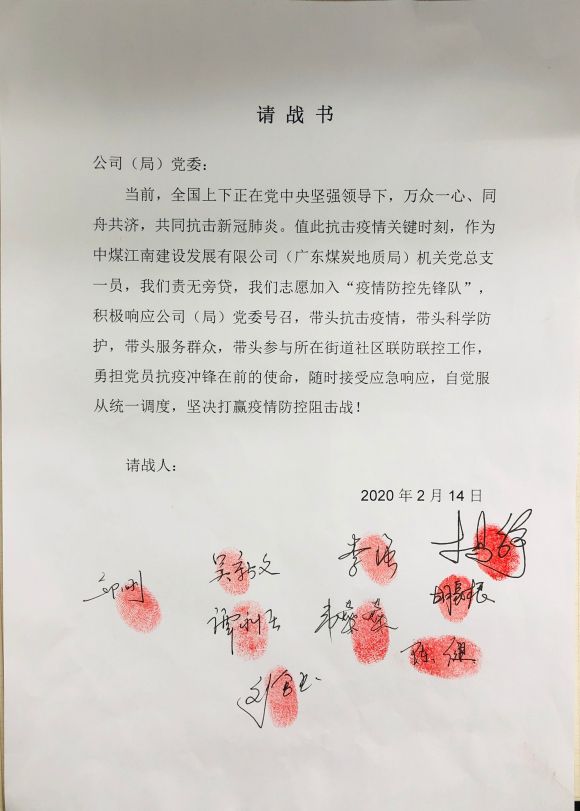 请战书
公司（局）党委：
当前，全国上下正在党中央坚强领导下，万众一心、同
舟共济，共同抗击新冠肺炎。值此抗击疫情关键时刻，作为
中煤江南建设发展有限公司（广东煤炭地质局）机关党总支
一员，我们责无旁贷，我们志愿加入“疫情防控先锋队”，
积极响应公司（局）党委号召，带头抗击疫情，带头科学防
护，带头服务群众，带头参与所在街道社区联防联控工作，
勇担党员抗疫冲锋在前的使命，随时接受应急响应，自觉服
从统一调度，坚决打赢疫情防控阻击战！
请战人：
2020年2月14日
吴新文 李强
陈健